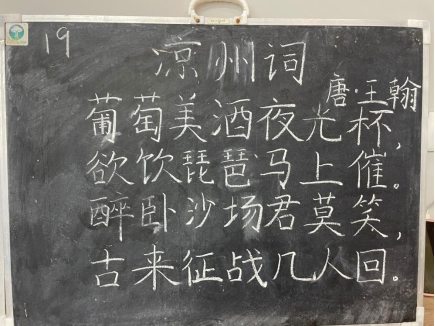 19
凉州词
唐·王翰
葡萄美酒夜光杯，
欲饮琵琶马上催。
醉卧沙场君莫笑，
古来征战几人回。